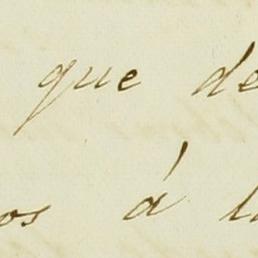 que de
os á la